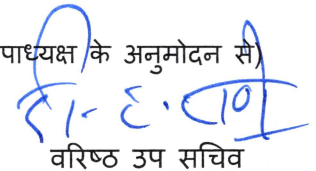 पाध्यक्ष के अनुमोदन से)
वरिष्ठ उप सचिव